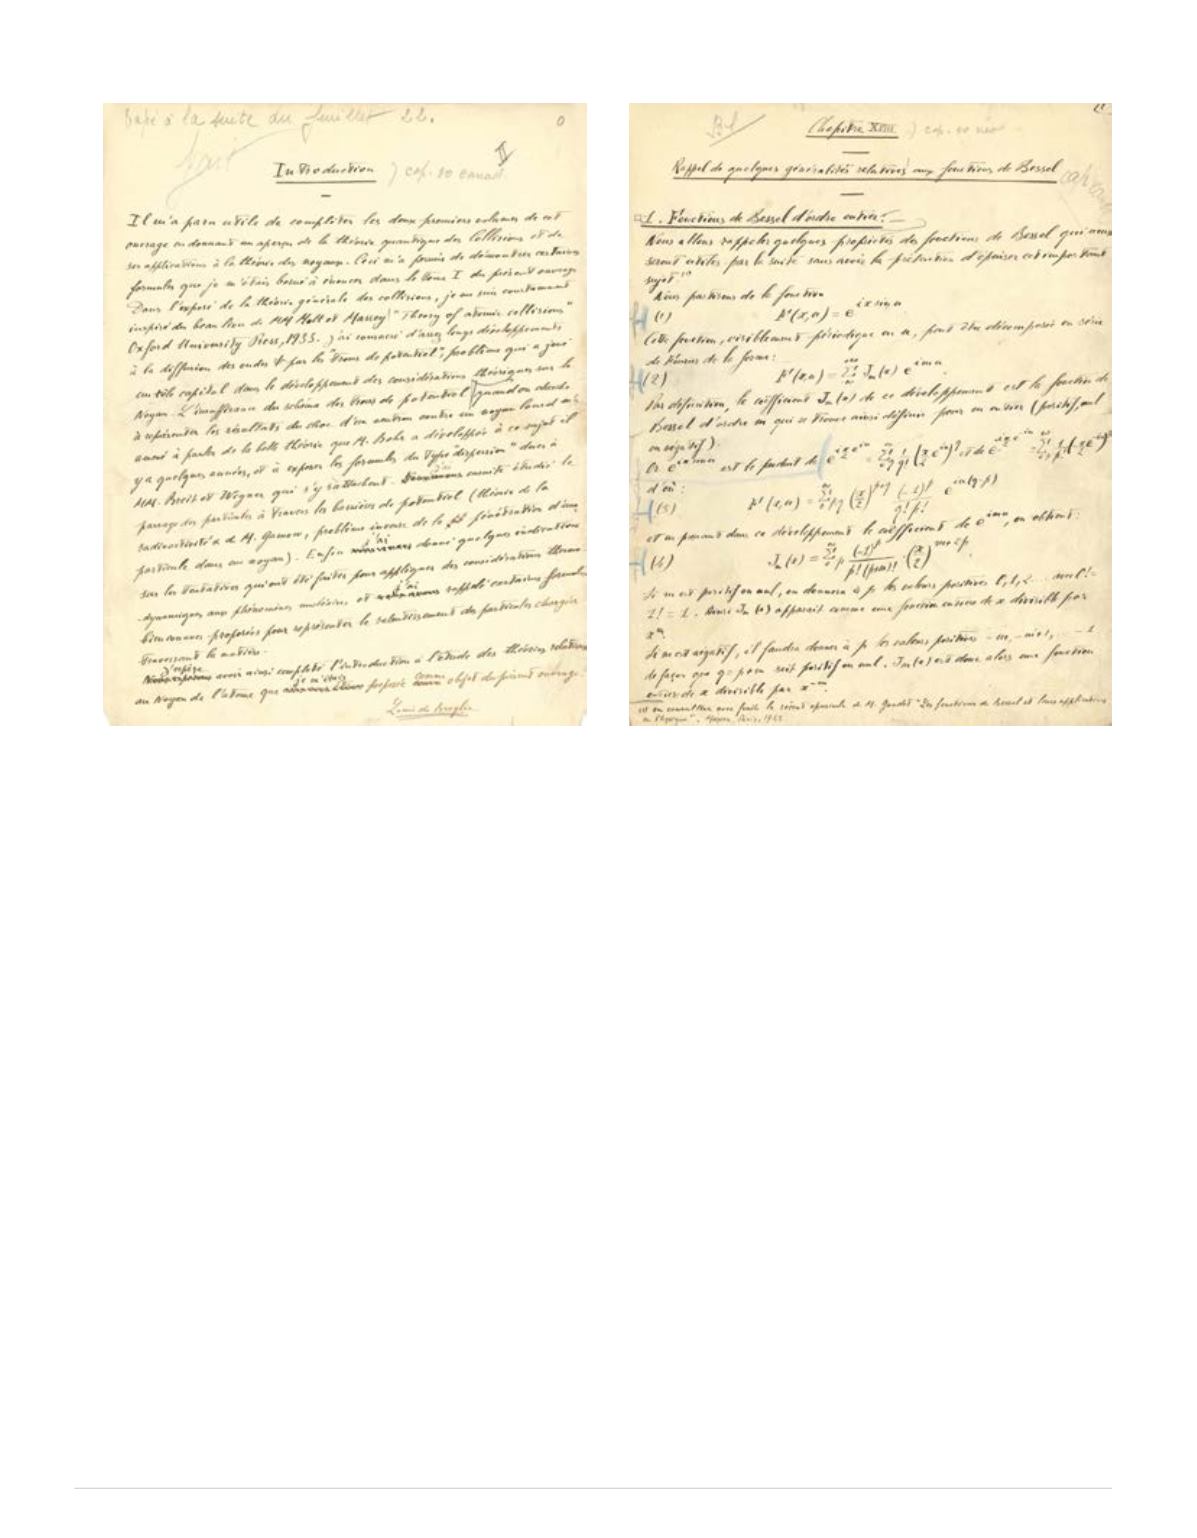 Tapé à la suite du feuillet 22.
0
II
Introduction
Il m'a paru utile de compléter les deux premiers volumes de cet
ouvrage en donnant un aperçu de la théorie quantique des Collisions et de
ses applications à la théorie des noyaux. Ceci m'a permis de démontrer certaines
formules que je m'étais borné à énoncer dans le tome I du présent ouvrage
Dans l'exposé de la théorie générale des collisions, je me suis constamment
inspiré du beau livre de MM Mott et Massey "Theory of atomic collisions"
Oxford University Press, 1933. J'ai consacré d'assez longs développements
à la diffusion des ondes Ψ par les "trous de potentiel", problème qui a joué
un rôle capital dans le développement des considérations théoriques sur le
Noyau. L'insuffisance du schéma des trous de potentiel quand on cherche
à représenter les résultats du choc d'un neutron contre un noyau lourd m'a
amené à parler de la belle théorie que M. Bohr a développée à ce sujet il
y a quelques années, et à exposer les formules du type "dispersion" dues à
MM. Breit et Wigner qui s'y rattachent. J'ai ensuite étudié le
passage des particules à travers les barrières de potentiel (théorie de la
radioactivité α de M. Gamow, problème inverse de la pénétration d'une
particule dans un noyau). Enfin j'ai donné quelques indications
sur les tentatives qui ont été faites pour appliquer des considérations thermo
-dynamiques aux phénomènes nucléaires, et j'ai rappelé certaines formules
bien connues proposées pour représenter le ralentissement des particules chargées
traversant la matière.
J'espère avoir ainsi complété l'introduction à l'étude des théories relatives
au Noyau de l'atome que je m'étais proposée comme objet du présent ouvrage.
Louis de Broglie
Chapitre XIII
Rappel de quelques généralités relatives aux fonctions de Bessel
1. Fonctions de Bessel d'ordre entier.
Nous allons rappeler quelques propriétés des fonctions de Bessel qui nous
seront utiles par la suite sans avoir la prétention d'épuiser cet important
sujet.
Nous partirons de la fonction
(1) F(x,α) = e^{ix sin α}
Cette fonction, visiblement périodique en α, peut être décomposée en série
de Fourier de la forme:
(2) F(x,α) = Σ J_m(x) e^{imα}
Par définition, le coefficient J_m(x) de ce développement est la fonction de
Bessel d'ordre m qui se trouve ainsi définie pour m entier (positif, nul
ou négatif).
Or est le produit de
d'où:
(3)
et en prenant dans ce développement le coefficient de e^{imα}, on obtient:
(4)
Si m est positif ou nul, on donnera à p les valeurs positives 0, 1, 2 ... avec 0! =
1! = 1. Ainsi J_m(x) apparaît comme une fonction entière de x divisible par
x^m.
Si m est négatif, il faudra donner à p les valeurs positives -m, -m+1, ...
de façon que q = p+m soit positif ou nul. J_m(x) est donc alors une fonction
entière de x divisible par x^{-m}.